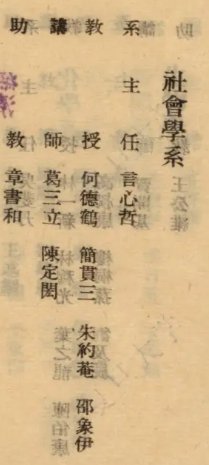 社會學系
系主任 言心哲
教授 何德鶴 簡貫三 朱約菴 邵象伊
講師 葛三立 陳定閎
助教 章書和